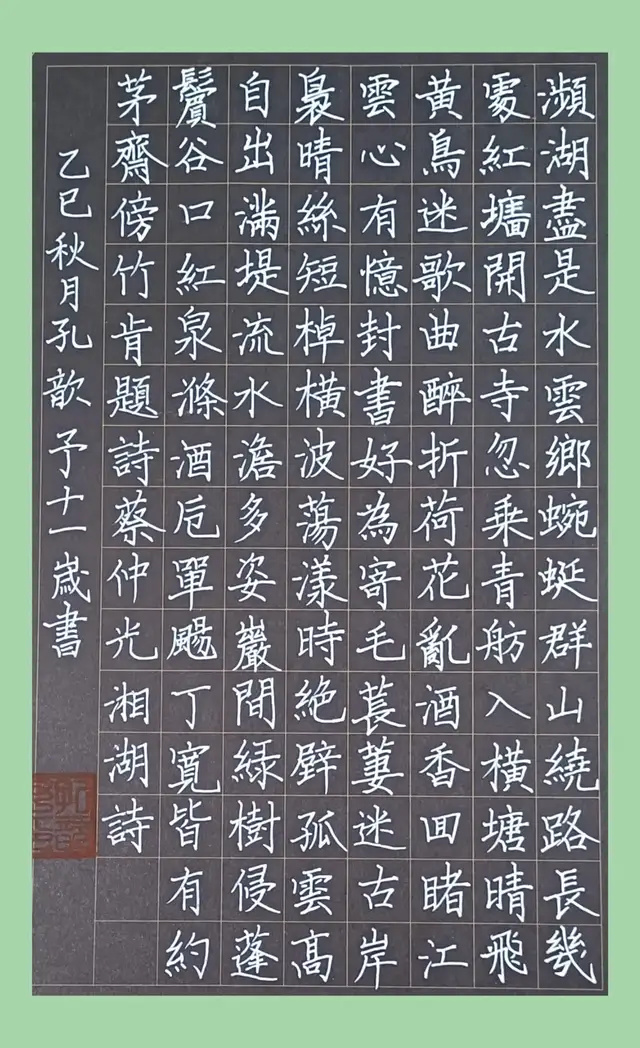 瀕湖盡是水雲鄉蜿蜒群山繞路長幾
處紅墻開古寺忽乘青舫入橫塘晴飛
黃鳥迷歌曲醉折荷花亂酒香回睹江
雲心有憶封書好為寄毛萇萋迷古岸
裊晴絲短棹橫波蕩漾時絕壁孤雲高
自出滿堤流水澹多姿巖間綠樹侵蓬
鬢谷口紅泉滌酒卮單颺丁寬皆有約
茅齋傍竹肯題詩蔡仲光湘湖詩
乙巳秋月孔歆予十一歲書